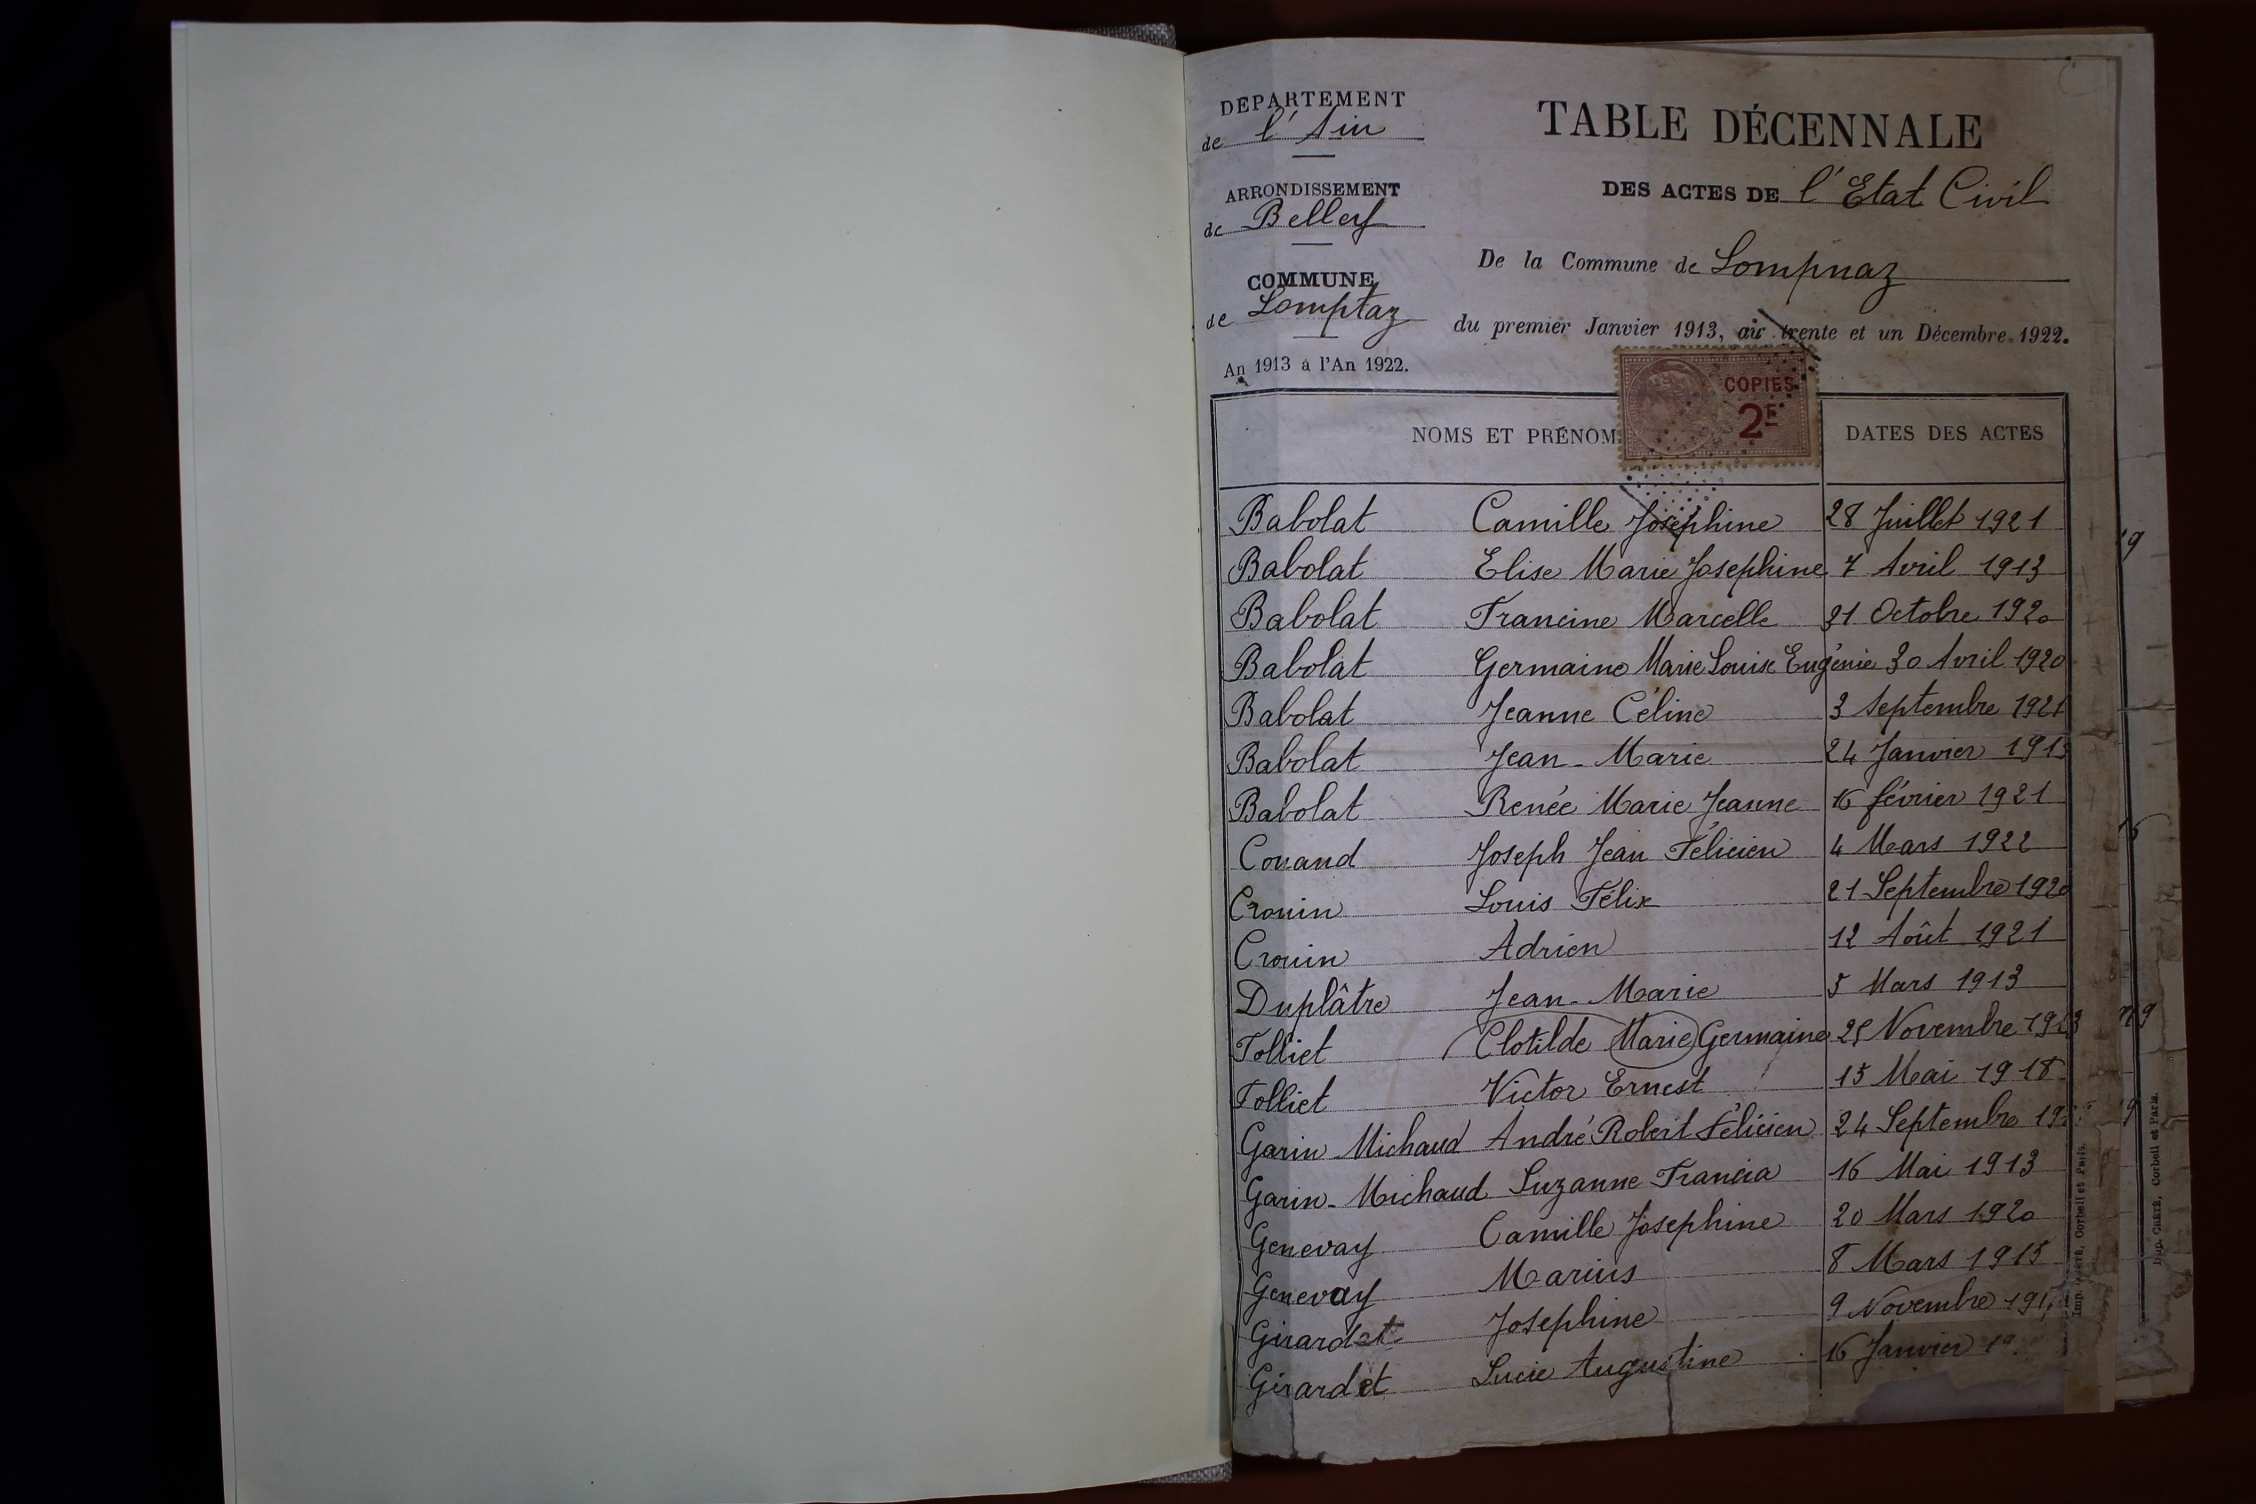 DEPARTEMENT
de l'Ain
ARRONDISSEMENT
de Belley
COMMUNE
de Lomptaz
An 1913 à l'An 1922.
TABLE DÉCENNALE
DES ACTES DE l'Etat Civil
De la Commune de Lompnaz
du premier Janvier 1913, au trente et un Décembre 1922.
COPIES
2F
NOMS ET PRÉNOM DATES DES ACTES
Babolat Camille Josephine 28 Juillet 1921
Babolat Elise Marie Josephine 7 Avril 1913
Babolat Francine Marcelle 31 Octobre 1920
Babolat Germaine Marie Louise Eugénie 30 Avril 1920
Babolat Jeanne Céline 3 Septembre 1921
Babolat Jean-Marie 24 Janvier 1913
Babolat Renée Marie Jeanne 16 février 1921
Conand Joseph Jean Félicien 4 Mars 1922
Crouin Louis Félix 21 Septembre 1920
Crouin Adrien 12 Août 1921
Duplâtre Jean-Marie 5 Mars 1913
Folliet Clotilde Marie Germaine 25 Novembre
Folliet Victor Ernest 15 Mai 1918
Garin Michaud André Robert Félicien 24 Septembre
Garin-Michaud Suzanne Francia 16 Mai 1913
Genevay Camille Josephine 20 Mars 1920
Genevay Marius 8 Mars 1915
Girardet Josephine 9 Novembre
Girardet Lucie Augustine 16 Janvier
Imp. CRÉTÉ, Corbeil et Paris.
Imp. CRÉTÉ, Corbeil et Paris.